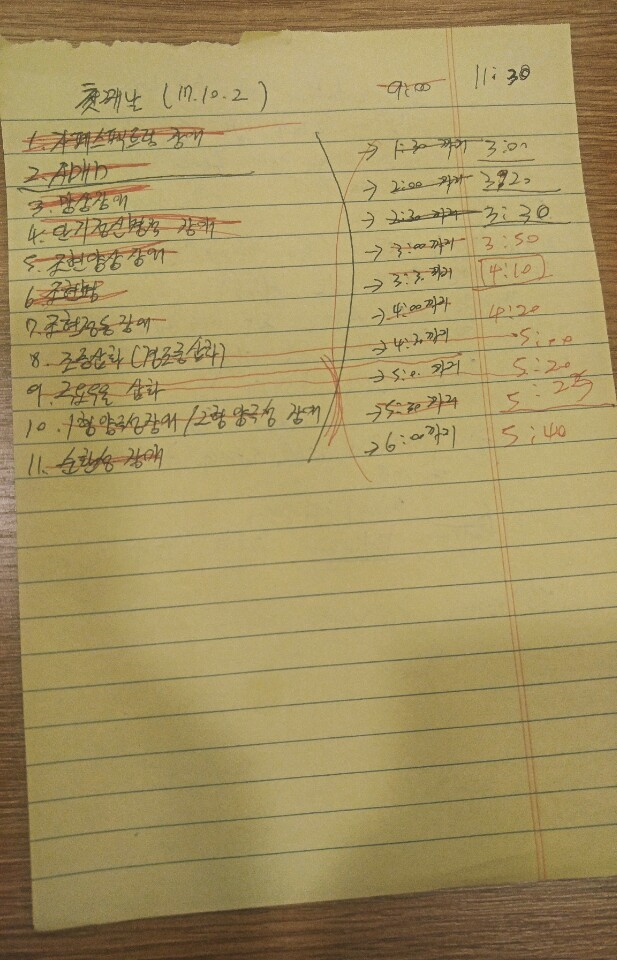 첫째날 (17.10.2) 9:00 11:30
1. 자폐스펙트럼 장애 → 1:30 까지 3:00
2. ADHD → 2:00 까지
3. 망상장애 → 2:30 까지 3:30
4. 단기정신병적 장애 → 3:00 까지 3:50
5. 조현양상장애 → 3:3. 까지 4:10
6. 조현병 → 4:00 까지 4:20
7. 조현정동장애 → 4:3. 까지 5:00
8. 조증삽화 (경조증삽화) → 5:0. 까지 5:20
9. 주요우울 삽화 → 5:30 까지 5:25
10. 1형 양극성장애 / 2형 양극성 장애 → 6:00 까지 5:40
11. 순환성 장애